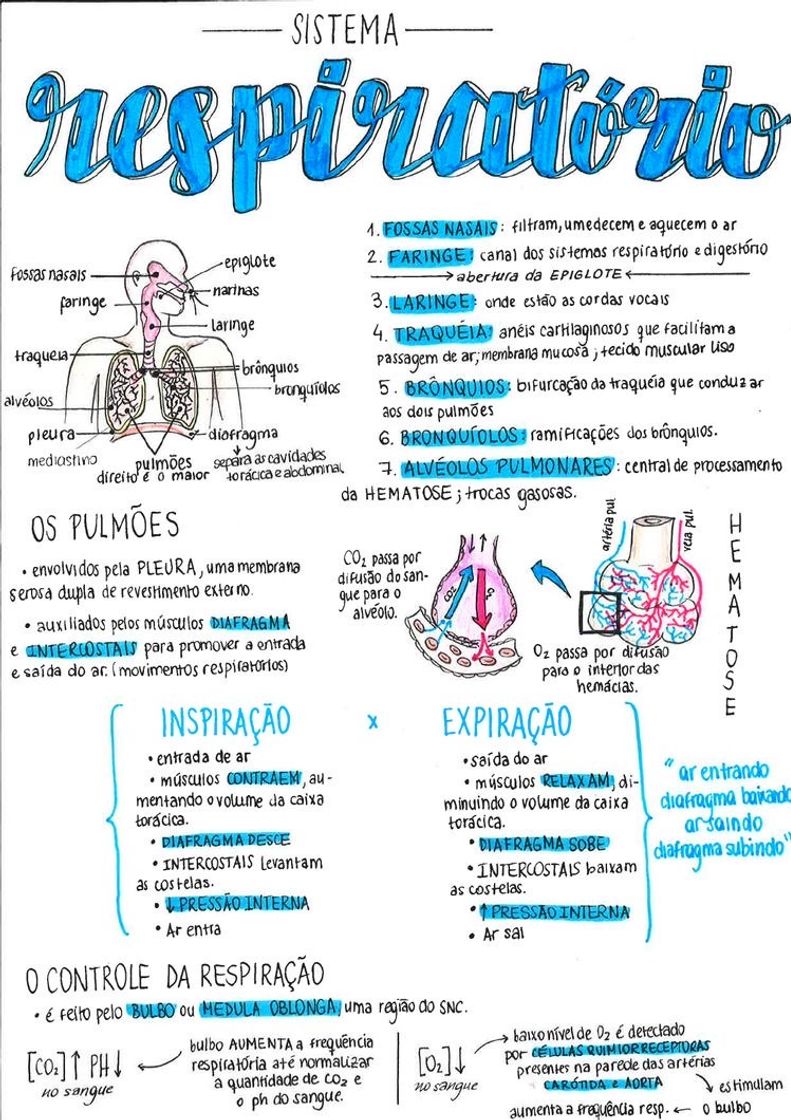 SISTEMA
respiratório
fossas nasais
faringe
traqueia
alvéolos
pleura
mediastino
epiglote
narinas
laringe
brônquios
bronquíolos
diafragma
separa as cavidades
torácica e abdominal
pulmões
direito é o maior
1. FOSSAS NASAIS: filtram, umedecem e aquecem o ar
2. FARINGE: canal dos sistemas respiratório e digestório
abertura da EPIGLOTE
3. LARINGE: onde estão as cordas vocais
4. TRAQUÉIA: anéis cartilaginosos que facilitam a
passagem de ar; membrana mucosa; tecido muscular liso
5. BRÔNQUIOS: bifurcação da traquéia que conduz ar
aos dois pulmões
6. BRONQUÍOLOS: ramificações dos brônquios.
7. ALVÉOLOS PULMONARES: central de processamento
da HEMATOSE; trocas gasosas.
OS PULMÕES
• envolvidos pela PLEURA, uma membrana
serosa dupla de revestimento externo.
• auxiliados pelos músculos DIAFRAGMA
e INTERCOSTAIS para promover a entrada
e saída do ar. (movimentos respiratórios)
CO₂ passa por
difusão do san-
gue para o
alvéolo.
CO₂
artéria pul.
veia pul.
O₂ passa por difusão
para o interior das
hemácias.
HEMATOSE
INSPIRAÇÃO x EXPIRAÇÃO
• entrada de ar
• músculos CONTRAEM, au-
mentando o volume da caixa
torácica.
• DIAFRAGMA DESCE
• INTERCOSTAIS levantam
as costelas.
• ↓ PRESSÃO INTERNA
• Ar entra
• saída do ar
• músculos RELAXAM, di-
minuindo o volume da caixa
torácica.
• DIAFRAGMA SOBE
• INTERCOSTAIS baixam
as costelas.
• ↑ PRESSÃO INTERNA
• Ar sai
"ar entrando
diafragma baixando
ar saindo
diafragma subindo"
O CONTROLE DA RESPIRAÇÃO
• é feito pelo BULBO ou MEDULA OBLONGA, uma região do SNC.
[CO₂]↑ PH↓
no sangue
bulbo AUMENTA a frequência
respiratória até normalizar
a quantidade de CO₂ e
o ph do sangue.
[O₂]↓
no sangue
baixo nível de O₂ é detectado
por CÉLULAS QUIMIORRECEPTORAS
presentes na parede das artérias
CARÓTIDA e AORTA
estimulam
o bulbo
aumenta a frequência resp. ←